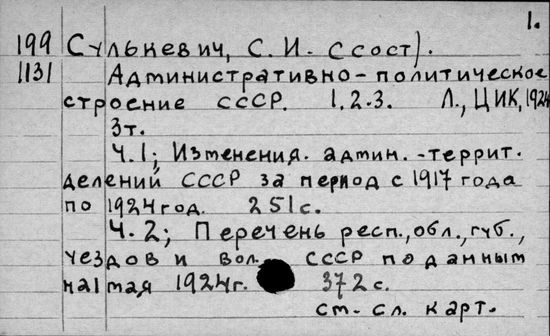 1.
199 Сулькевич, С. И. (сост).
1131 Административно-политическое
строение СССР. 1.2.3. Л., ЦИК, 1924
3т.
Ч.1; Изменения. админ.-террит.
делений СССР за период с 1917 года
по 1924 год. 251 с.
Ч.2; Перечень респ., обл., губ.,
уездов и вол. СССР по данным
на 1 мая 1924 г. 372 с.
см. сл. карт.